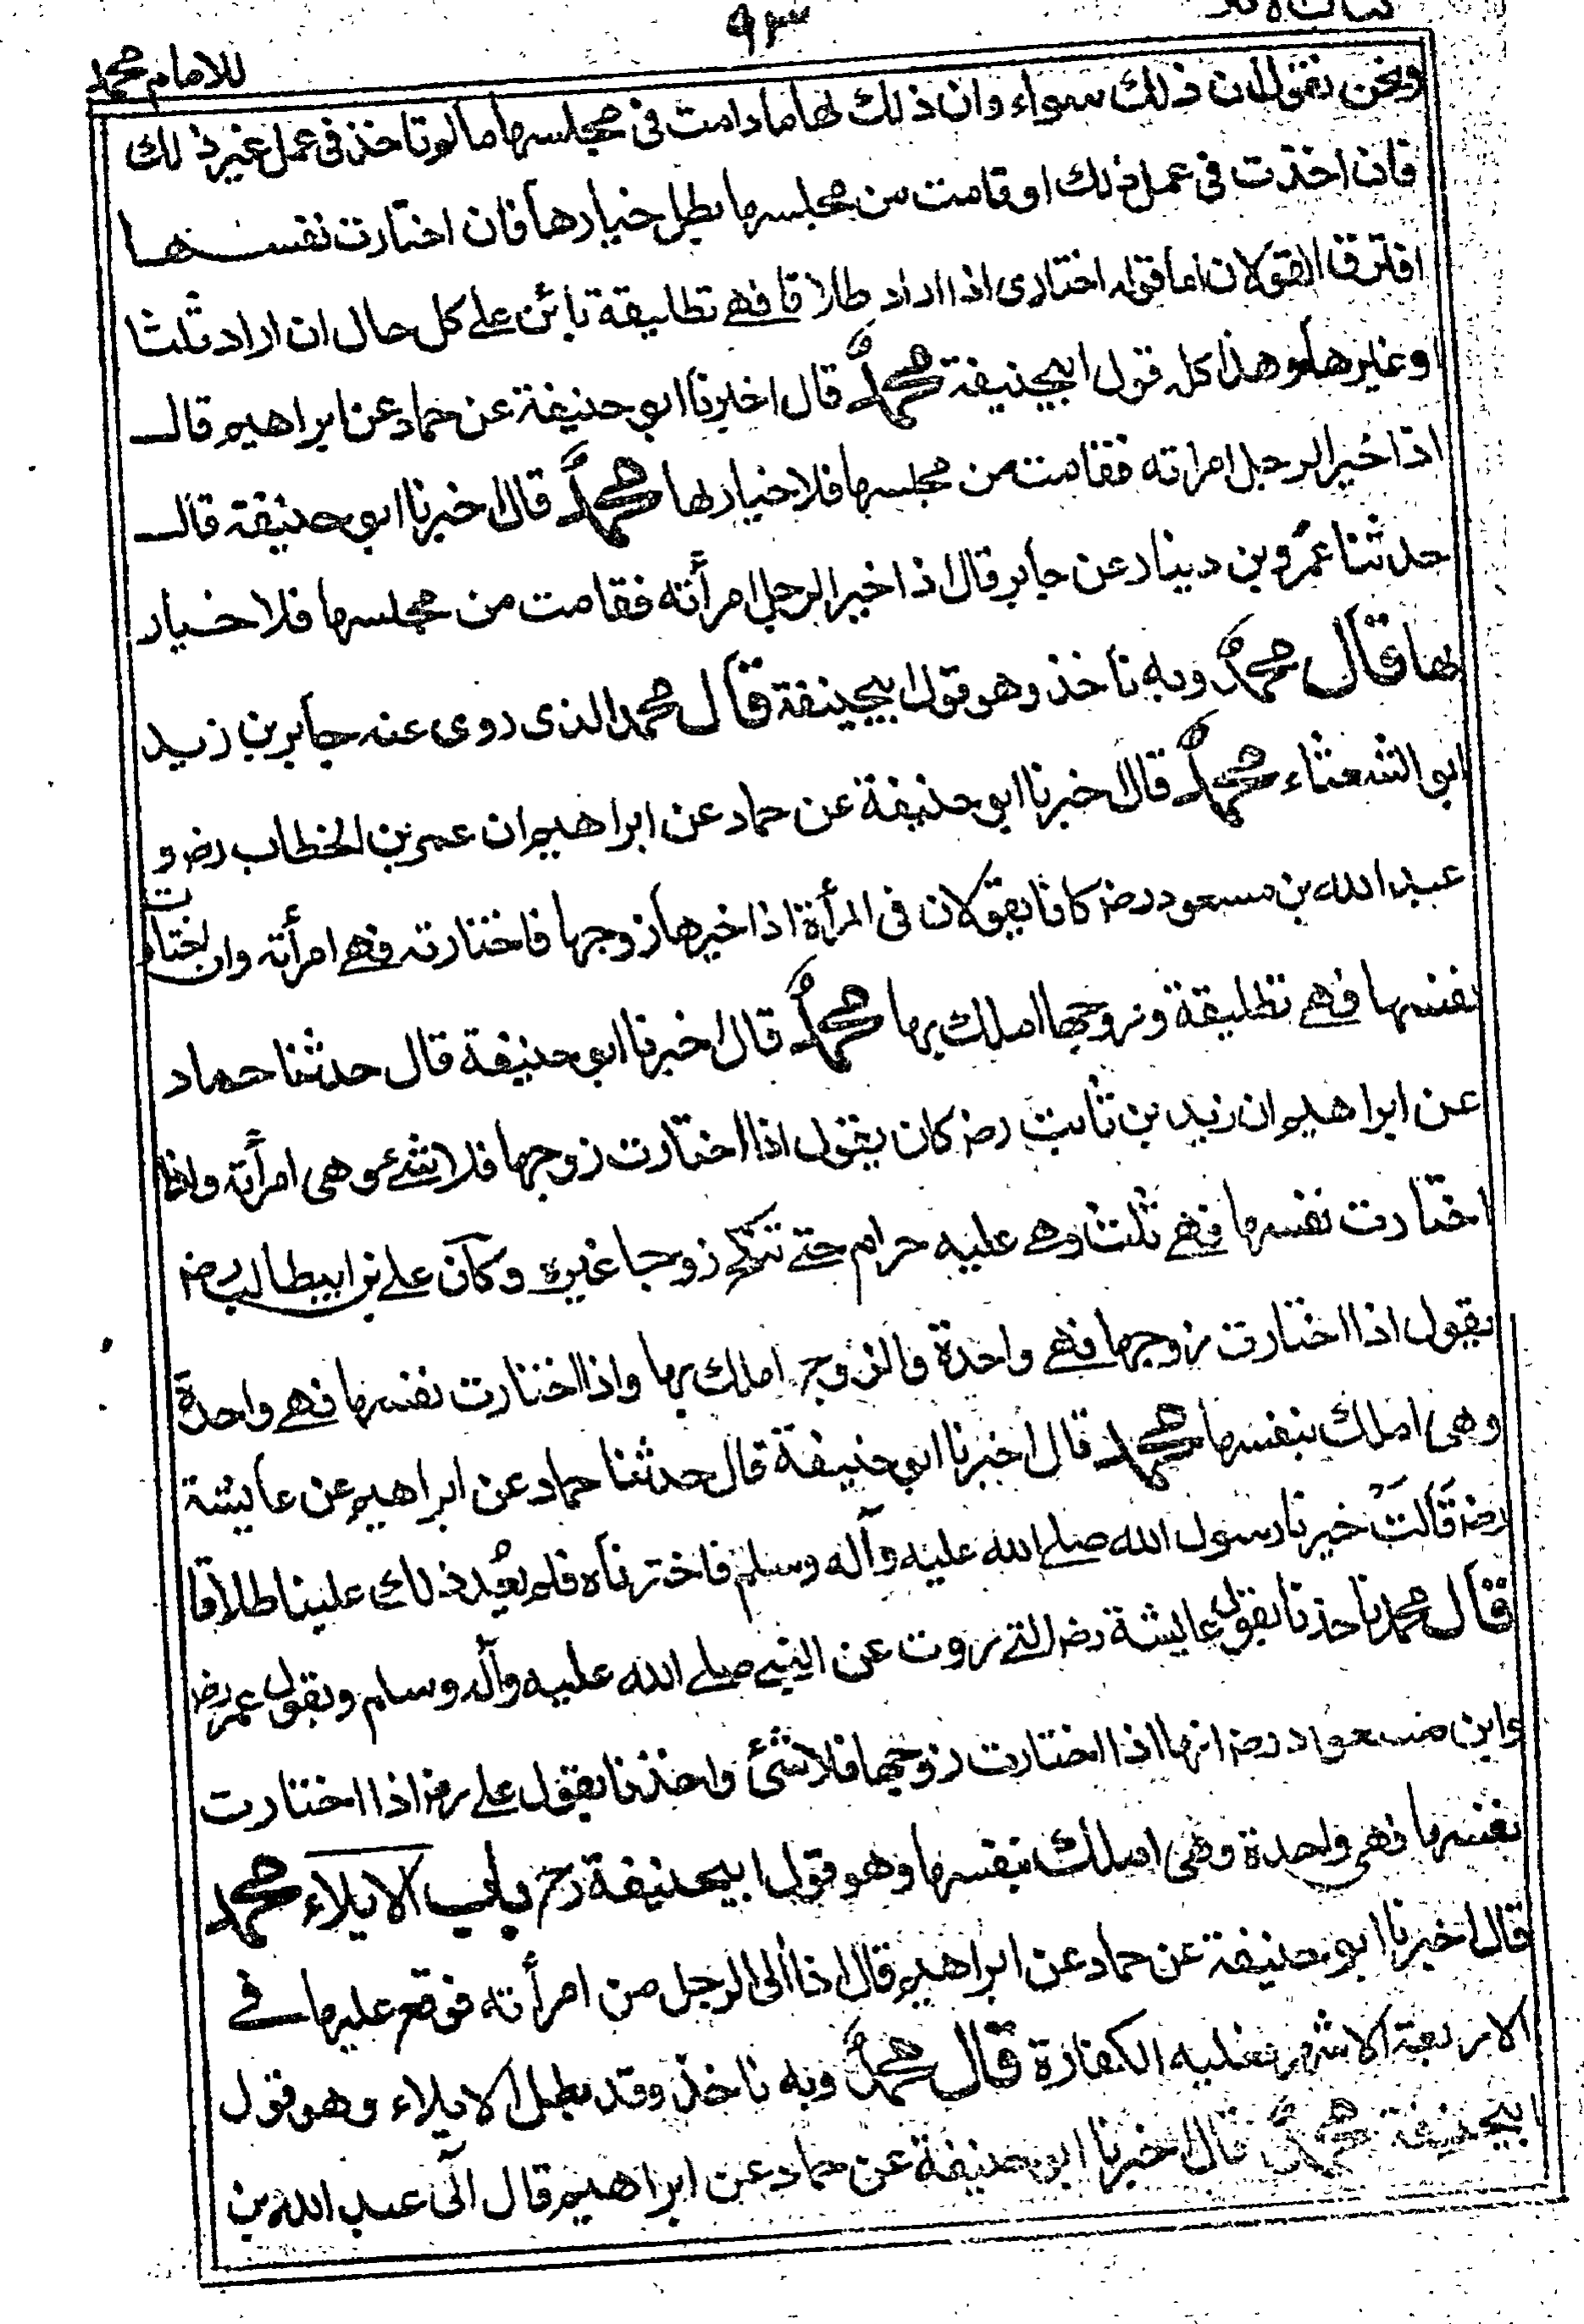 ٩٣
للامام محمد
ونحن نقول ان ذلك سواء وان ذلك لها ما دامت فى مجلسها ما لو تاخذ فى عمل غير ذلك
فان اخذت فى عمل ذلك او قامت من مجلسها بطل خيارها فان اختارت نفسها
افترق القولان اما قوله اختارى اذا اراد طلاقا فهے تطليقة بائن علے كل حال ان اراد ثلثا
او غيرها وهذا كله قول ابيحنيفة محمد قال اخبرنا ابو حنيفة عن حماد عن ابراهيم قال
اذا خير الرجل امراته فقامت من مجلسها فلا خيار لها محمد قال اخبرنا ابو حنيفة قال
حدثنا عمرو بن دينار عن جابر قال اذا خير الرجل امرأته فقامت من مجلسها فلا خيار
لها قال محمد وبه ناخذ وهو قول ابيحنيفة قال محمد الذى روى عنه جابر بن زيد
ابو الشعثاء محمد قال اخبرنا ابو حنيفة عن حماد عن ابراهيم ان عمر بن الخطاب رضـ و
عبد الله بن مسعود رضـ كانا يقولان فى المرأة اذا خيرها زوجها فاختارته فهے امرأته وان اختارت
نفسها فهے تطليقة وزوجها املك بها محمد قال اخبرنا ابو حنيفة قال حدثنا حماد
عن ابراهيم ان زيد بن ثابت رضـ كان يقول اذا اختارت زوجها فلا شئ وهى امرأته واذا
اختارت نفسها فهے ثلث وهے عليه حرام حتے تنكح زوجا غيره وكان علے بن ابيطالب رضـ
يقول اذا اختارت زوجها فهے واحدة والزوج املك بها واذا اختارت نفسها فهے واحدة
وهى املك بنفسها محمد قال اخبرنا ابو حنيفة قال حدثنا حماد عن ابراهيم عن عايشة
رضـ قالت خيرنا رسول الله صلے الله عليه وآله وسلم فاخترناه فلم يعد ذلك علينا طلاقا
قال محمد ناخذنا بقول عايشة رضـ التے روت عن النبے صلے الله عليه وآله وسلم وبقول عمر رضـ
وابن مسعود رضـ انها اذا اختارت زوجها فلا شئ واخذنا بقول علے رضـ اذا اختارت
نفسها فهى واحدة وهى املك بنفسها وهو قول ابيحنيفة رحـ باب الايلاء محمد
قال اخبرنا ابو حنيفة عن حماد عن ابراهيم قال اذا آلى الرجل من امرأته فوقع عليها فے
الاربعة الاشهر فعليه الكفارة قال محمد وبه ناخذ وقد بطل الايلاء وهو قول
ابيحنيفة محمد قال اخبرنا ابو حنيفة عن حماد عن ابراهيم قال آلى عبد الله بن